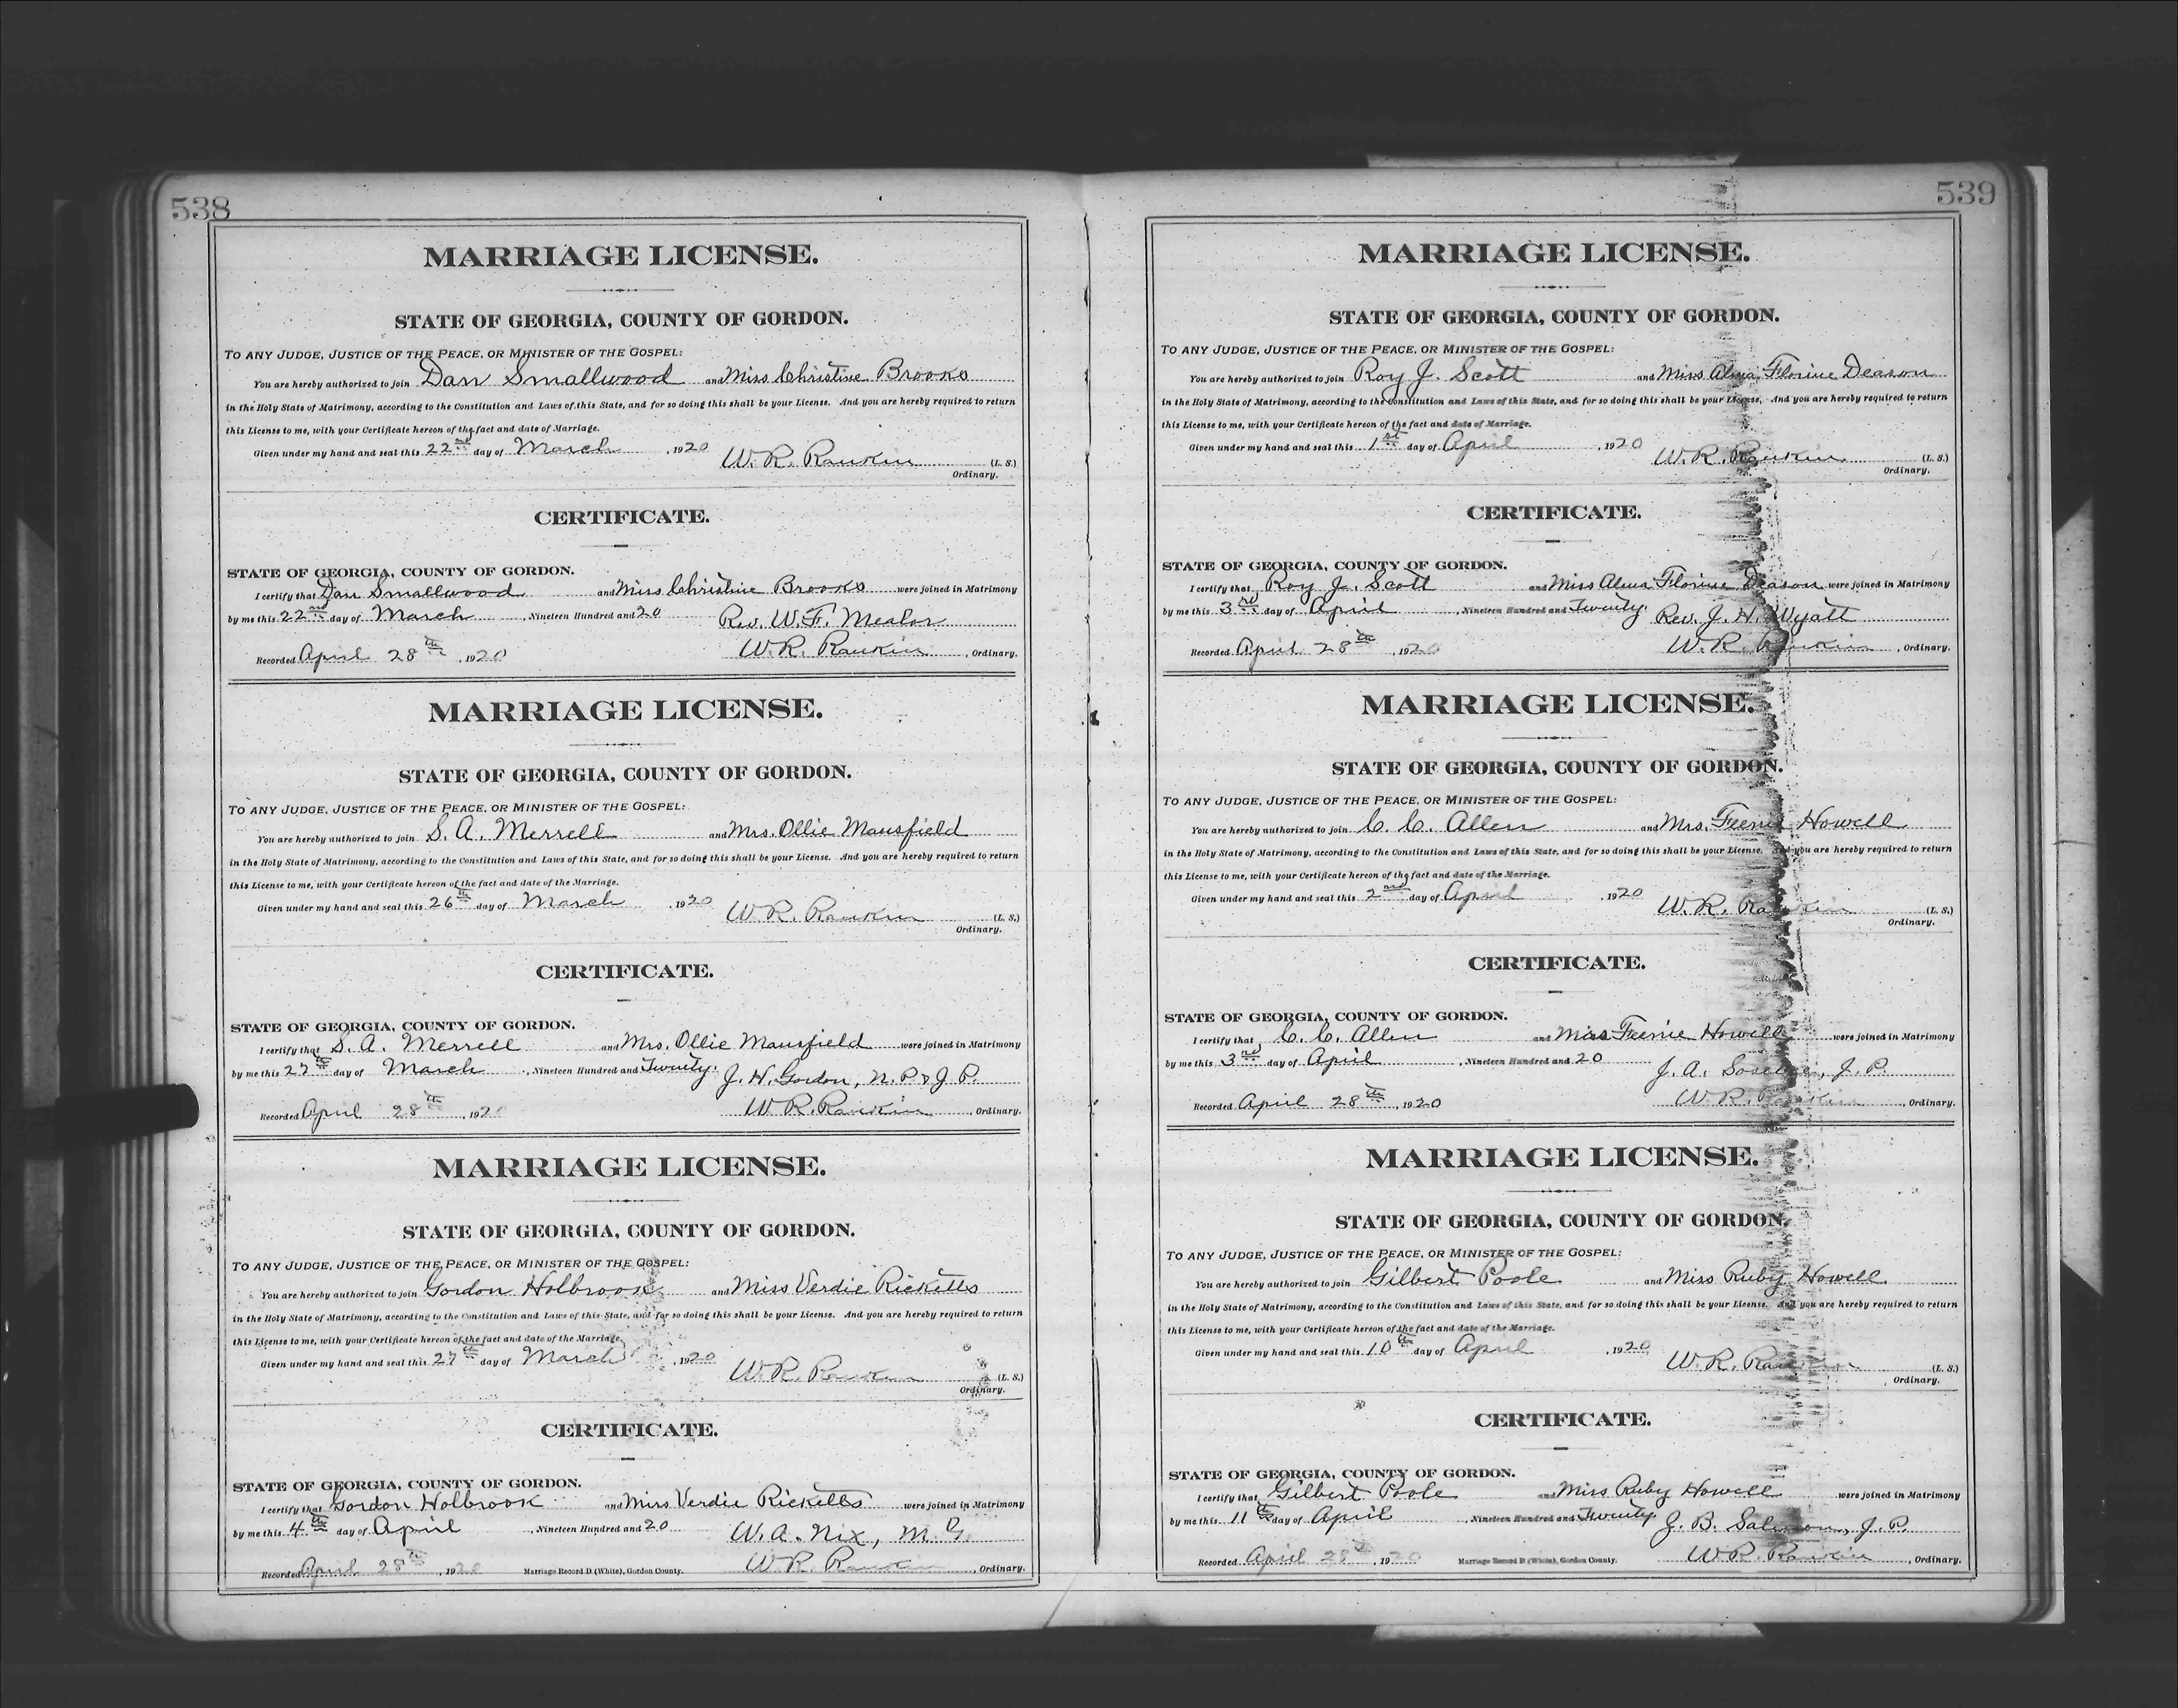 538
MARRIAGE LICENSE.
STATE OF GEORGIA, COUNTY OF GORDON.
TO ANY JUDGE, JUSTICE OF THE PEACE, OR MINISTER OF THE GOSPEL:
You are hereby authorized to join Dan Smallwood and Miss Christine Brooks
in the Holy State of Matrimony, according to the Constitution and Laws of this State, and for so doing this shall be your License. And you are hereby required to return
this License to me, with your Certificate hereon of the fact and date of Marriage.
Given under my hand and seal this 22nd day of March, 1920 W. R. Rankin (L. S.)
Ordinary.
CERTIFICATE.
STATE OF GEORGIA, COUNTY OF GORDON.
I certify that Dan Smallwood and Miss Christine Brooks were joined in Matrimony
by me this 22nd day of March, Nineteen Hundred and 20 Rev. W. F. Mealor
Recorded April 28th, 1920 W. R. Rankin, Ordinary.
MARRIAGE LICENSE.
STATE OF GEORGIA, COUNTY OF GORDON.
TO ANY JUDGE, JUSTICE OF THE PEACE, OR MINISTER OF THE GOSPEL:
You are hereby authorized to join S. A. Merrell and Mrs. Ollie Mansfield
in the Holy State of Matrimony, according to the Constitution and Laws of this State, and for so doing this shall be your License. And you are hereby required to return
this License to me, with your Certificate hereon of the fact and date of the Marriage.
Given under my hand and seal this 26th day of March, 1920 W. R. Rankin (L. S.)
Ordinary.
CERTIFICATE.
STATE OF GEORGIA, COUNTY OF GORDON.
I certify that S. A. Merrell and Mrs. Ollie Mansfield were joined in Matrimony
by me this 27th day of March, Nineteen Hundred and Twenty. J. H. Gordon, N. P. & J. P.
Recorded April 28th, 192 W. R. Rankin, Ordinary.
MARRIAGE LICENSE.
STATE OF GEORGIA, COUNTY OF GORDON.
TO ANY JUDGE, JUSTICE OF THE PEACE, OR MINISTER OF THE GOSPEL:
You are hereby authorized to join Gordon Holbrook and Miss Verdie Ricketts
in the Holy State of Matrimony, according to the Constitution and Laws of this State, and for so doing this shall be your License. And you are hereby required to return
this License to me, with your Certificate hereon of the fact and date of the Marriage.
Given under my hand and seal this 27th day of March, 1920 W. R. Rankin (L. S.)
Ordinary.
CERTIFICATE.
STATE OF GEORGIA, COUNTY OF GORDON.
I certify that Gordon Holbrook and Miss Verdie Ricketts were joined in Matrimony
by me this 4th day of April, Nineteen Hundred and 20 W. A. Nix, M. G.
Recorded April 28th, 1920 Marriage Record D (White), Gordon County. W. R. Rankin, Ordinary.
539
MARRIAGE LICENSE.
STATE OF GEORGIA, COUNTY OF GORDON.
TO ANY JUDGE, JUSTICE OF THE PEACE, OR MINISTER OF THE GOSPEL:
You are hereby authorized to join Roy J. Scott and Miss Alma Florine Deason
in the Holy State of Matrimony, according to the Constitution and Laws of this State, and for so doing this shall be your License. And you are hereby required to return
this License to me, with your Certificate hereon of the fact and date of Marriage.
Given under my hand and seal this 1st day of April, 1920 W. R. Rankin (L. S.)
Ordinary.
CERTIFICATE.
STATE OF GEORGIA, COUNTY OF GORDON.
I certify that Roy J. Scott and Miss Alma Florine Deason were joined in Matrimony
by me this 3rd day of April, Nineteen Hundred and Twenty. Rev. J. H. Wyatt
Recorded April 28th, 1920 W. R. Rankin, Ordinary.
MARRIAGE LICENSE.
STATE OF GEORGIA, COUNTY OF GORDON.
TO ANY JUDGE, JUSTICE OF THE PEACE, OR MINISTER OF THE GOSPEL:
You are hereby authorized to join C. C. Allen and Mrs. Feenie Howell
in the Holy State of Matrimony, according to the Constitution and Laws of this State, and for so doing this shall be your License. And you are hereby required to return
this License to me, with your Certificate hereon of the fact and date of the Marriage.
Given under my hand and seal this 2nd day of April, 1920 W. R. Rankin (L. S.)
Ordinary.
CERTIFICATE.
STATE OF GEORGIA, COUNTY OF GORDON.
I certify that C. C. Allen and Miss Feenie Howell were joined in Matrimony
by me this 3rd day of April, Nineteen Hundred and 20 J. A. J. P.
Recorded April 28th, 1920 W. R. Rankin, Ordinary.
MARRIAGE LICENSE.
STATE OF GEORGIA, COUNTY OF GORDON.
TO ANY JUDGE, JUSTICE OF THE PEACE, OR MINISTER OF THE GOSPEL:
You are hereby authorized to join Gilbert Poole and Miss Ruby Howell
in the Holy State of Matrimony, according to the Constitution and Laws of this State, and for so doing this shall be your License. And you are hereby required to return
this License to me, with your Certificate hereon of the fact and date of the Marriage.
Given under my hand and seal this 10th day of April, 1920 W. R. Rankin (L. S.)
Ordinary.
CERTIFICATE.
STATE OF GEORGIA, COUNTY OF GORDON.
I certify that Gilbert Poole and Miss Ruby Howell were joined in Matrimony
by me this 11th day of April, Nineteen Hundred and Twenty. J. B. Salmon, J. P.
Recorded April 28th, 1920 Marriage Record D (White), Gordon County. W. R. Rankin, Ordinary.